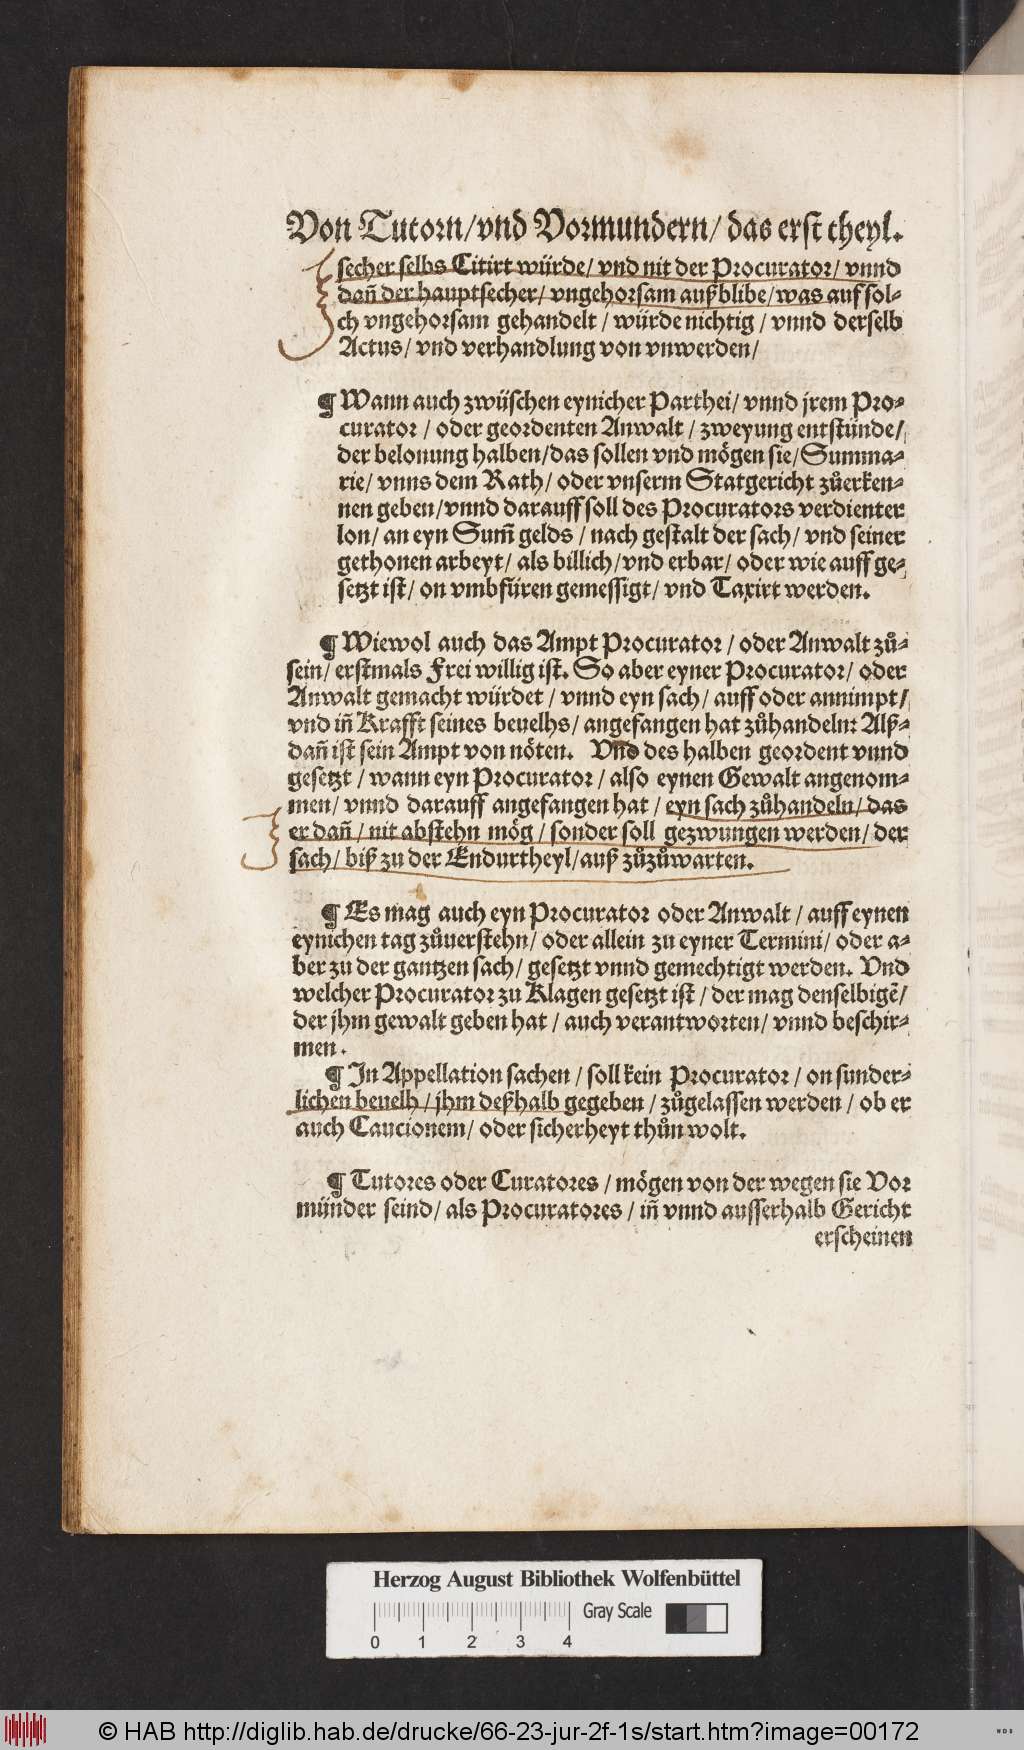 Von Tutorn/ vnd Vormundern/ das erst theyl.
secher selbs Citirt würde/ vnd nit der Procurator/ vnnd
dañ der hauptsecher/ vngehorsam außblibe/ was auf sol-
ch vngehorsam gehandelt / würde nichtig / vnnd derselb
Actus/ vnd verhandlung von vnwerden/
¶ Wann auch zwüschen eynicher Parthei/ vnnd jrem Pro-
curator / oder geordenten Anwalt / zweyung entstünde/
der belonung halben/ das sollen vnd mögen sie/ Summa-
rie/ vnns dem Rath/ oder vnserm Statgericht zůerken-
nen geben/ vnnd darauff soll des Procurators verdienter
lon/ an eyn Sum̃ gelds / nach gestalt der sach/ vnd seiner
gethonen arbeyt/ als billich/ vnd erbar/ oder wie auff ge-
setzt ist/ on vmbfüren gemessigt/ vnd Taxirt werden.
¶ Wiewol auch das Ampt Procurator / oder Anwalt zů-
sein/ erstmals Frei willig ist. So aber eyner Procurator/ oder
Anwalt gemacht würdet / vnnd eyn sach/ auff oder annimpt/
vnd iñ Krafft seines beuelhs/ angefangen hat zůhandeln: Alß-
dañ ist sein Ampt von nöten. Vnd des halben geordent vnnd
gesetzt / wann eyn Procurator / also eynen Gewalt angenom-
men/ vnnd darauff angefangen hat / eyn sach zůhandeln/ das
er dañ / nit abstehn mög / sonder soll gezwungen werden/ der
sach/ biß zu der Endurtheyl/ auß zůzůwarten.
¶ Es mag auch eyn Procurator oder Anwalt / auff eynen
eynichen tag zůuerstehn/ oder allein zu eyner Termini/ oder a-
ber zu der gantzen sach/ gesetzt vnnd gemechtigt werden. Vnd
welcher Procurator zu Klagen gesetzt ist / der mag denselbigẽ/
der jhm gewalt geben hat / auch verantworten/ vnnd beschir-
men.
¶ In Appellation sachen / soll kein Procurator / on sunder-
lichen beuelh / jhm deßhalb gegeben / zůgelassen werden / ob er
auch Caucionem/ oder sicherheyt thůn wolt.
¶ Tutores oder Curatores / mögen von der wegen sie Vor
münder seind/ als Procuratores / iñ vnnd ausserhalb Gericht
erscheinen
Herzog August Bibliothek Wolfenbüttel
Gray Scale
0 1 2 3 4
© HAB http://diglib.hab.de/drucke/66-23-jur-2f-1s/start.htm?image=00172